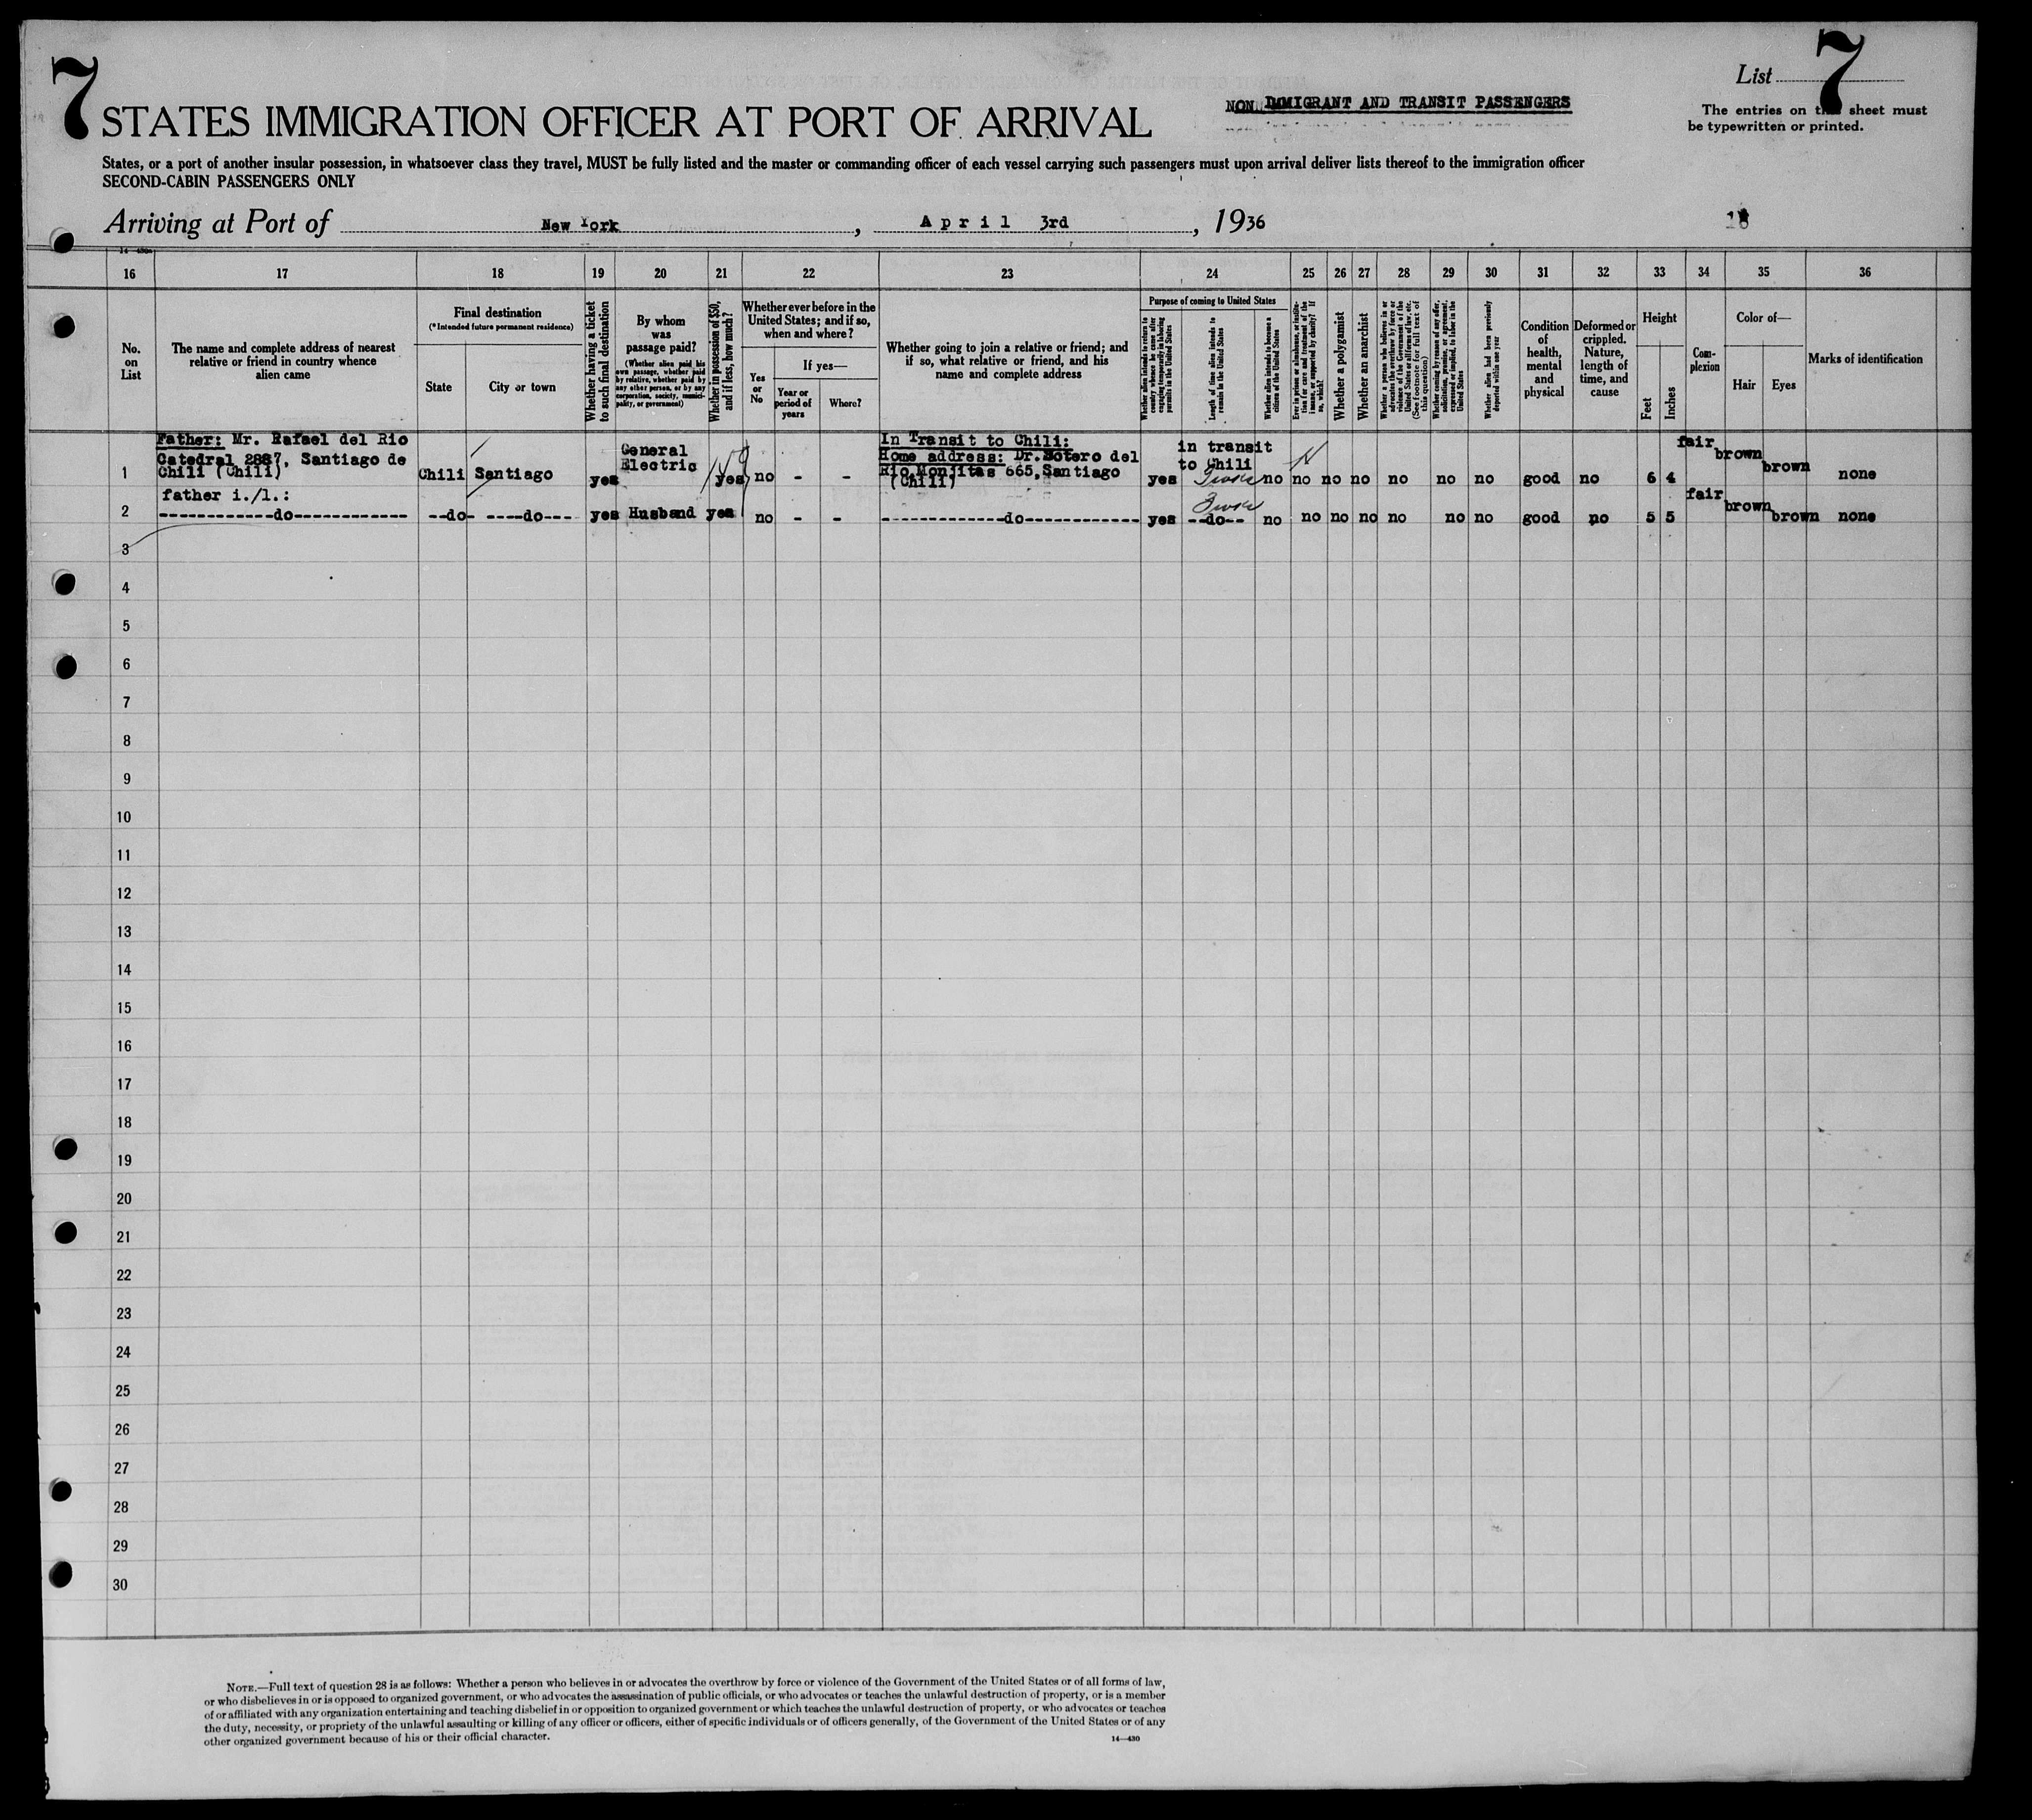 7
List 7
The entries on this sheet must
be typewritten or printed.
STATES IMMIGRATION OFFICER AT PORT OF ARRIVAL
NON IMMIGRANT AND TRANSIT PASSENGERS
States, or a port of another insular possession, in whatsoever class they travel, MUST be fully listed and the master or commanding officer of each vessel carrying such passengers must upon arrival deliver lists thereof to the immigration officer
SECOND-CABIN PASSENGERS ONLY
Arriving at Port of New York, April 3rd, 1936
16 17 18 19 20 21 22 23 24 25 26 27 28 29 30 31 32 33 34 35 36
No.
on
List
The name and complete address of nearest
relative or friend in country whence
alien came
Final destination
(*Intended future permanent residence)
State
City or town
Whether having a ticket
to such final destination
By whom
was
passage paid?
(Whether alien paid his
own passage, whether paid
by relative, whether paid by
any other person, or by any
corporation, society, munici-
pality, or government)
Whether in possession of $50,
and if less, how much?
Whether ever before in the
United States; and if so,
when and where?
Yes
or
No
If yes—
Year or
period of
years
Where?
Whether going to join a relative or friend; and
if so, what relative or friend, and his
name and complete address
Purpose of coming to United States
Whether alien intends to return to
country whence he came after
engaging temporarily in laboring
pursuits in the United States
Length of time alien intends to
remain in the United States
Whether alien intends to become a
citizen of the United States
Ever in prison or almshouse, or institu-
tion for care and treatment of the
insane, or supported by charity? If
so, which?
Whether a polygamist
Whether an anarchist
Whether a person who believes in or
advocates the overthrow by force or
violence of the Government of the
United States or all forms of law, etc.
(See footnote for full text of
this question)
Whether coming by reason of any offer,
solicitation, promise, or agreement,
expressed or implied, to labor in the
United States
Whether alien had been previously
deported within one year
Condition
of
health,
mental
and
physical
Deformed or
crippled.
Nature,
length of
time, and
cause
Height
Feet
Inches
Com-
plexion
Color of—
Hair
Eyes
Marks of identification
Father: Mr. Rafael del Rio
Catedral 2887, Santiago de
Chili (Chili)
1 Chili Santiago yes General
Electric yes no - -
In Transit to Chili:
Home address: Dr. Sotero del
Rio, Monjitas 665, Santiago
(Chili)
yes in transit
to Chili no no no no no no no good no 6 4 fair brown brown none
father i./l.:
2 ------------do------------ --do- ----do--- yes Husband yes no - - ------------do------------ yes --do-- no no no no no no no good no 5 5 fair brown brown none
3
4
5
6
7
8
9
10
11
12
13
14
15
16
17
18
19
20
21
22
23
24
25
26
27
28
29
30
NOTE.—Full text of question 28 is as follows: Whether a person who believes in or advocates the overthrow by force or violence of the Government of the United States or of all forms of law,
or who disbelieves in or is opposed to organized government, or who advocates the assassination of public officials, or who advocates or teaches the unlawful destruction of property, or is a member
of or affiliated with any organization entertaining and teaching disbelief in or opposition to organized government or which teaches the unlawful destruction of property, or who advocates or teaches
the duty, necessity, or propriety of the unlawful assaulting or killing of any officer or officers, either of specific individuals or of officers generally, of the Government of the United States or of any
other organized government because of his or their official character.
14—430